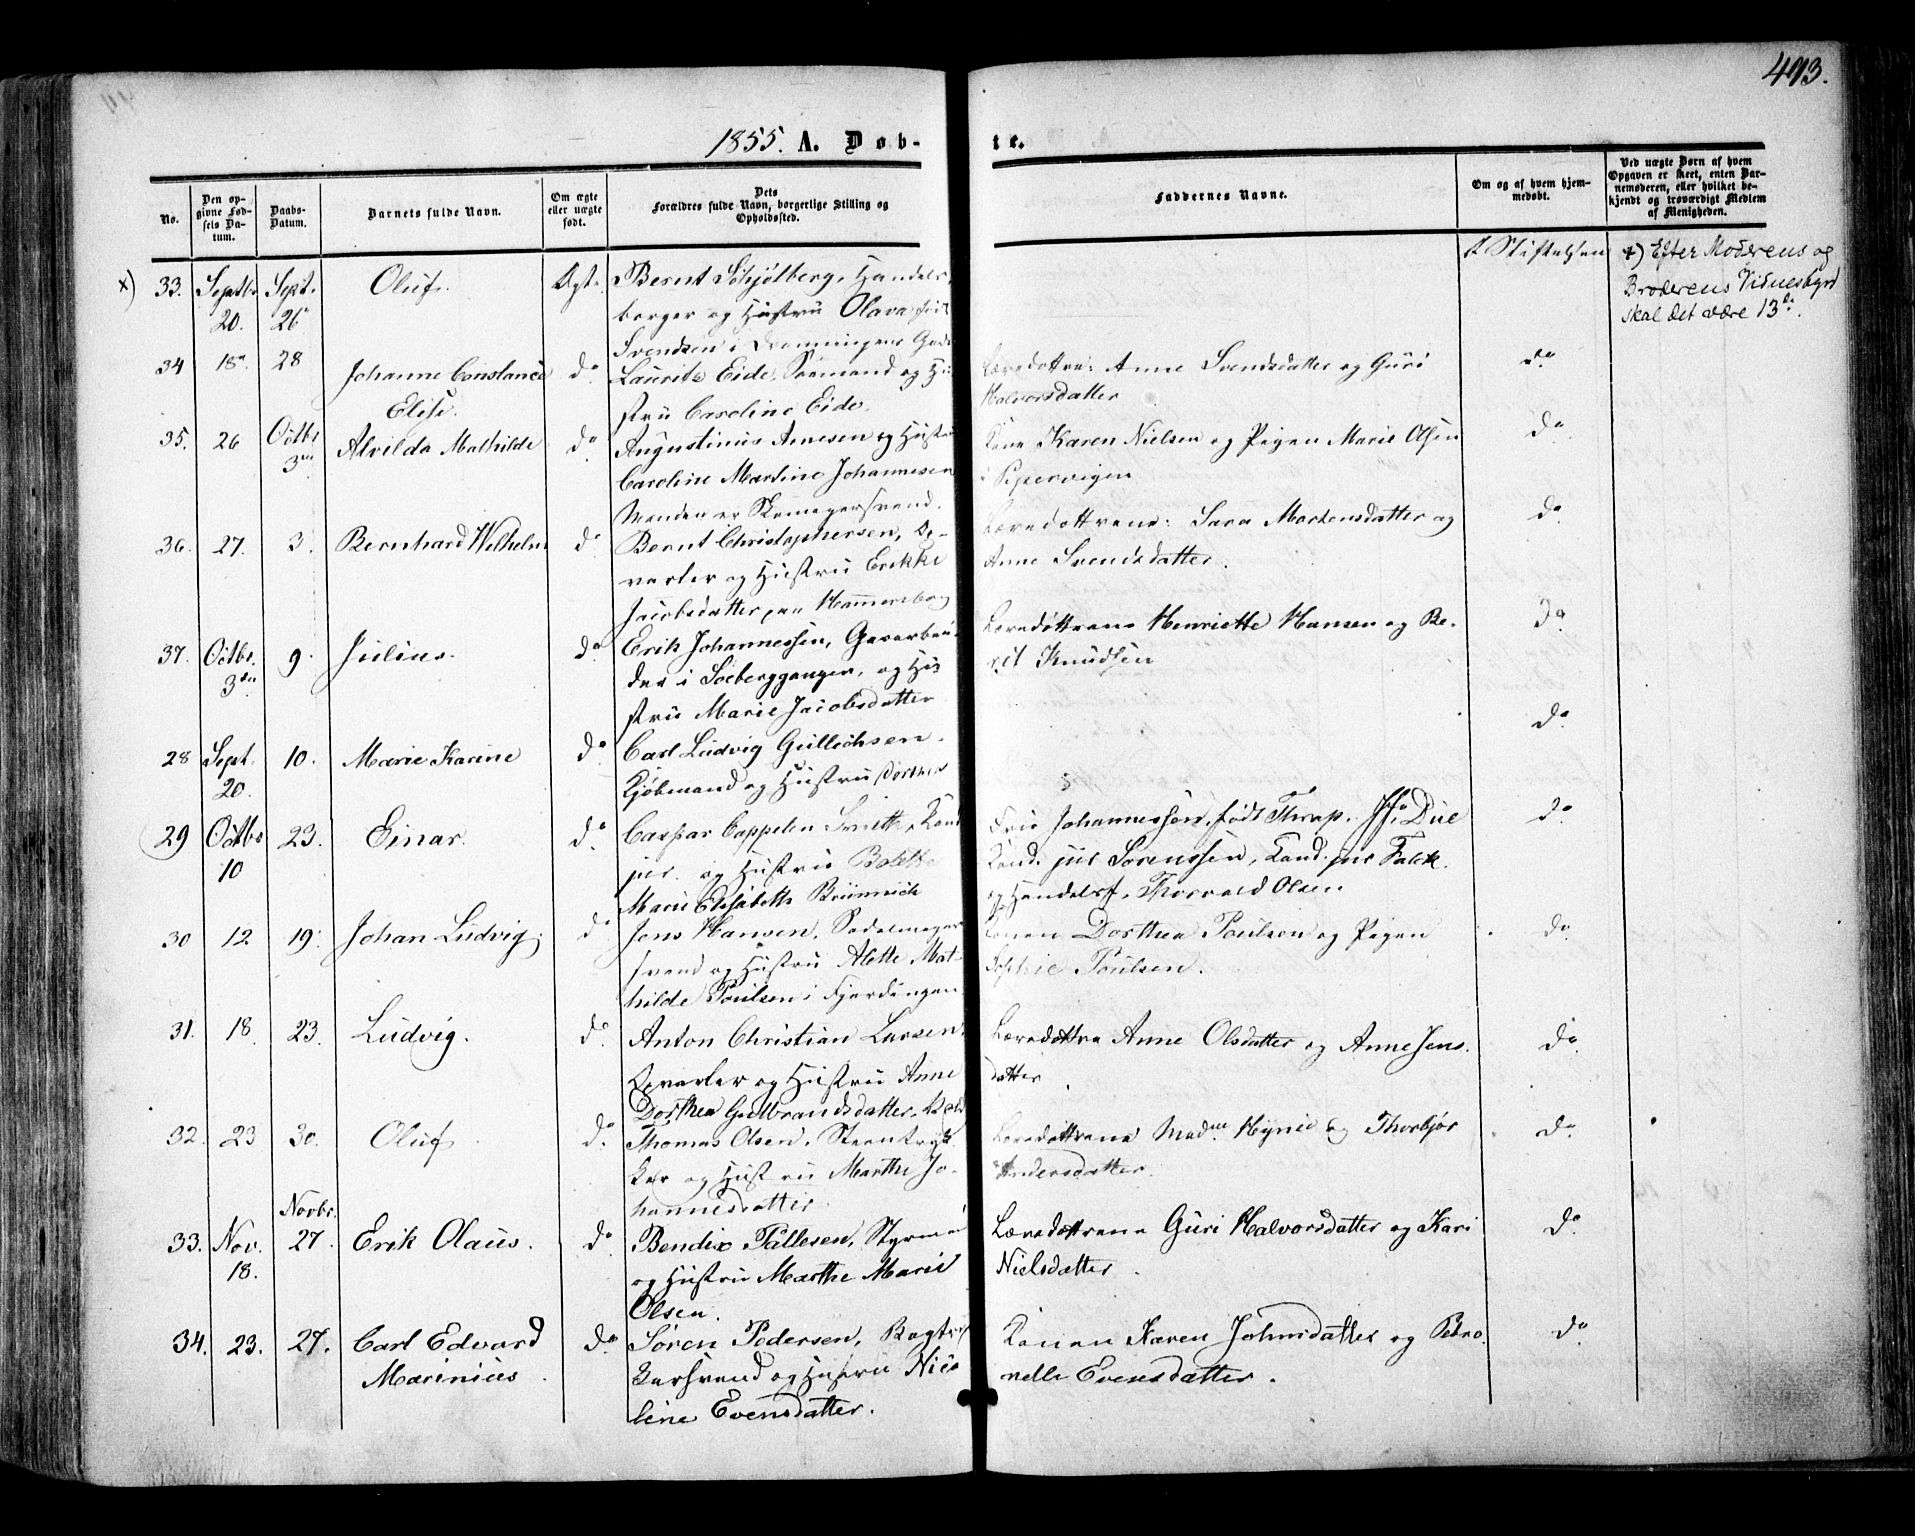 493.
1855. A. Døb-
te.
No.
Den op-
givne Fød-
sels Da-
tum.
Daabs-
Datum.
Barnets fulde Navn.
Om ægte
eller uægte
født.
Dets
Forældres fulde Navn, borgerlige Stilling og
Opholdssted.
Faddernes Navne.
Om og af hvem hjem-
medøbt.
Ved uægte Børn af hvem
Opgaven er skeet, enten Bar-
nemoderen, eller hvilket be-
kjendt og troværdigt Medlem
af Menigheden.
x) 33. Septbr. 20. Sept. 26 Oluf. Ægt.
Bernt Schjølberg, Handels
borger og Hustru Olava født
Svendsen i
i Stiftelsen
x) Efter Moderens og
Broderens Vidnesbyrd
skal det være 13de.
34 18n 28 Johanne Constance
Elise. do
Lauritz Eide, Sømand og Hu
stru Caroline Eide.
Anne Svendsdatter og Guri
Halvorsdatter
do
35. 26 Octbr 3die Alvilda Mathilde do
Augustinus Arnesen og Hustru
Caroline Martine Johannesen
Manden er Skomagersvend.
Kone Karen Nielsen og Pigen Marie Olsen
i Pipervigen
do
36. 27. 3. Bernhard Wilhelm do
Bernt Christophersen, Op-
varter og Hustru Erikke
Jacobsdatter paa Hammersborg
Læredøttrene: Sara Mortensdatter og
Anne Svendsdatter.
do
37. Octbr. 3die 9. Julius. do
Erik Johannessen, Garverbu
der i Soeberggangen, og Hu
stru Marie Jacobsdatter
Læredøttrene Henriette Hansen og Be-
rit Knudsen
do
28 Sept. 20. 10. Marie Karine do
Carl Ludvig Gullichsen.
Kjøbmand og Hustru Dorthea
do
29 Octbr 10 23. Einar. do
Caspar Cappelen Smith, Kand
jur. og Hustru Bolette
Marie Elisabeth Brünnich
Fru Johannessen, født Thrap. Due
Kand. jur Sørenssen, Kand. jur Falck
og Handelsf. Thorvald Olsen
do
30 12 19. Johan Ludvig. do
Jens Hansen, Sadelmager
svend og Hustru Alette Mat-
hilde Poulsen i Fjerdingen
Konen Dorthea Poulsen og Pigen
Sophie Poulsen.
do
31. 18. 23. Ludvig. do
Anton Christian Larsen
Opvarter og Hustru Anne
Dorthea Gulbrandsdatter.
Læredøttre Anne Olsdatter og Anne Jens.
datter
do
32. 23 30. Oluf do
Thomas Olsen, Steentryk
ker og Hustru Marthe Jo-
hannesdatter
Læredøttrene Madme Hynie og Thorbjør
Andersdatter
do
33. Nov. 18. Novbr. 27. Erik Olaus. do
Bendix Pallesen, Styrmd
og Hustru Marthe Marie
Olsen.
Læredøttrene Guri Halvorsdatter og Kari
Nielsdatter.
do
34. 23. 27. Carl Edvard
Marinius. do
Søren Pedersen, Bogtryk
kersvend og Hustru Nico
line Evensdatter.
Konen Karen Johnsdatter og Petro.
nelle Evensdatter.
do